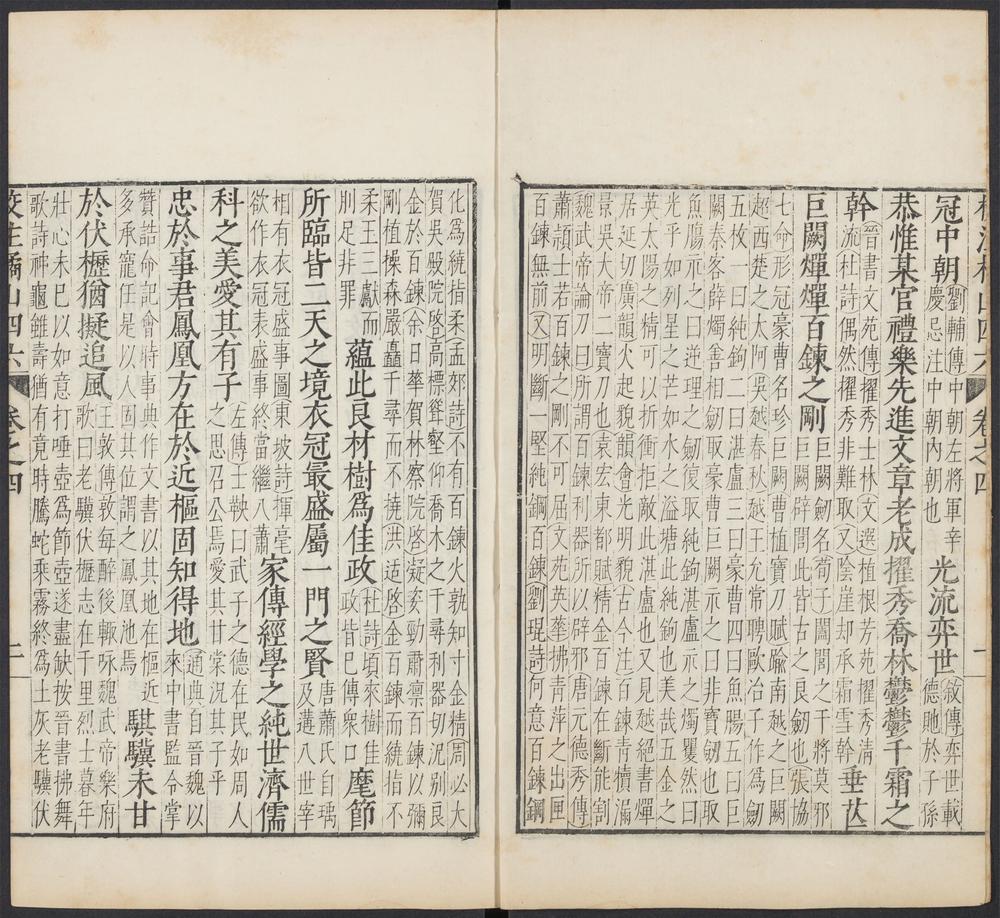 冠中朝
劉輔傳中朝左將軍辛
慶忌注中朝內朝也
光流弈世
敘傳弈世載
德虵於子孫
恭惟某官禮樂先進文章老成擢秀喬林鬱鬱千霜之
幹
晉書文苑傳擢秀士林文選植根芳苑擢秀清
流杜詩偶然擢秀非難取又陰崖却承霜雪幹
垂芘
巨闕燀燀百鍊之剛
巨闕劒名荀子闔閭之干將莫邪
巨闕辟閭此皆古之良劒也張協
七命形冠豪曹名珍巨闕曹植寶刀賦踰南越之巨闕
超西楚之太阿吳越春秋越王允常聘歐冶子作爲劒
五枚一曰純鉤二曰湛盧三曰豪曹四曰魚腸五曰巨
闕秦客薛燭善相劒取豪曹巨闕示之曰非寶劒也取
魚腸示之曰逆理之劒復取純鉤湛盧示之燭矍然曰
光乎如列星之芒如水之溢塘此純鉤也美哉五金之
英太陽之精可以折衝拒敵此湛盧也又見越絕書燀
居延切廣韻火起貌韻會光明貌古今注百鍊青犢漏
景吳大帝二寶刀也袁宏東都賦精金百鍊在斷能割
魏武帝論刀曰所謂百鍊利器所以辟邪唐元德秀傳
蕭頴士若百鍊之剛不可屈文苑英華拂青萍之出匣
百鍊無前又明斷一堅純鋼百鍊劉琨詩何意百鍊鋼
化爲繞指柔孟郊詩不有百鍊火孰知寸金精周必大
賀吳殿院啓高標聳壑仰喬木之千尋利器切況別良
金於百鍊余日華賀林察院啓凝姿勁肅凛百鍊以彌
剛植操森嚴矗千尋而不撓洪适啓金百鍊而繞指不
柔玉三獻而
刖足非罪
蘊此良材樹爲佳政
杜詩頃來樹佳
政皆已傳衆口
麾節
所臨皆二天之境衣冠最盛屬一門之賢
唐蕭氏自瑀
及遘八世宰
相有衣冠盛事圖東坡詩揮毫
欲作衣冠表盛事終當繼八蕭
家傳經學之純世濟儒
科之美愛其有子
左傳士鞅曰武子之德在民如周人
之思召公焉愛其甘棠況其子乎
忠於事君鳳凰方在於近樞固知得地
通典自晉魏以
來中書監令掌
贊詔命記會時事典作文書以其地在樞近
多承寵任是以人固其位謂之鳳凰池焉
騏驥未甘
於伏櫪猶擬追風
王敦傳敦每醉後輒咏魏武帝樂府
歌曰老驥伏櫪志在千里烈士暮年
壯心未已以如意打唾壺爲節壺遂盡缺按晉書拂舞
歌詩神龜雖壽猶有竟時騰蛇乘霧終爲土灰老驥伏
校注橘山四六 卷之四 二